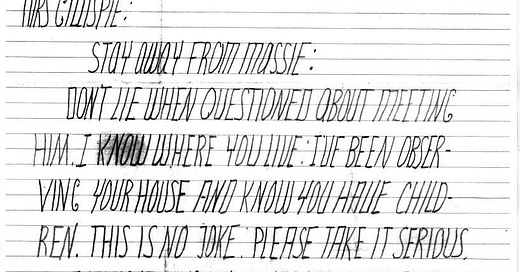 MRS GILLISPIE:
STAY AWAY FROM MASSIE:
DON'T LIE WHEN QUESTIONED ABOUT MEETING
HIM. I KNOW WHERE YOU LIVE: I'VE BEEN OBSER-
VING YOUR HOUSE AND KNOW YOU HAVE CHILD-
REN. THIS IS NO JOKE. PLEASE TAKE IT SERIOUS.